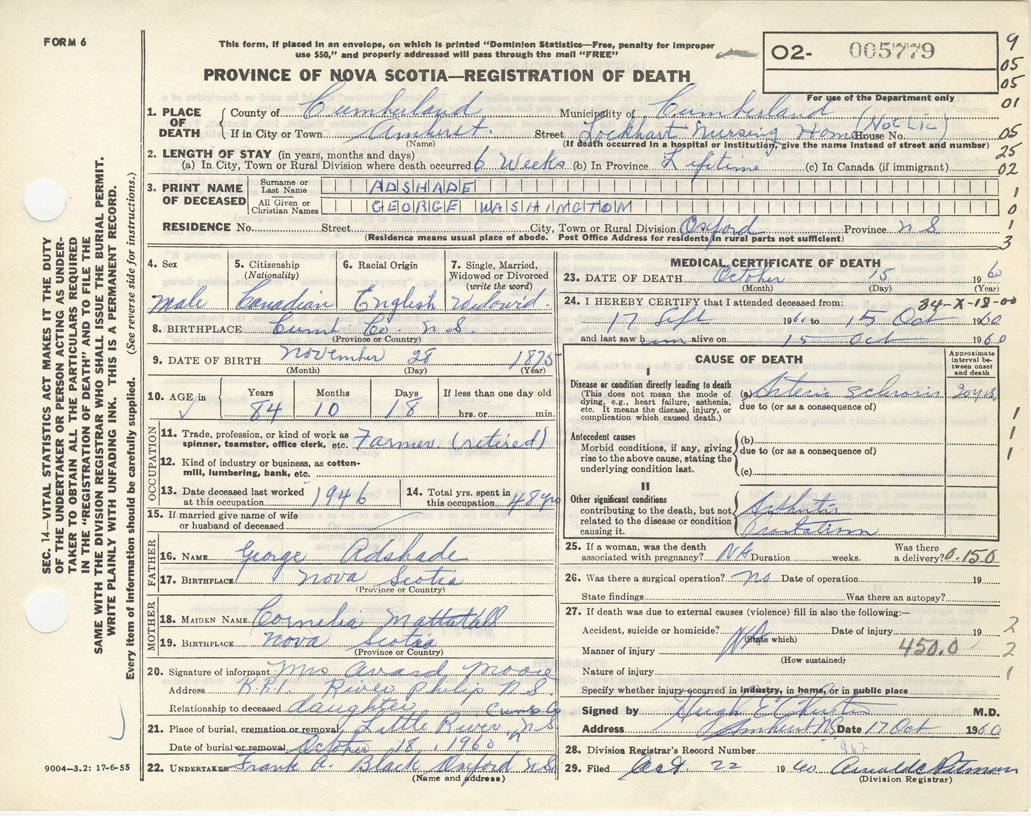 FORM 6
This form, if placed in an envelope, on which is printed "Dominion Statistics—Free, penalty for improper
use $50," and properly addressed will pass through the mail "FREE"
PROVINCE OF NOVA SCOTIA—REGISTRATION OF DEATH
O2- 005779
For use of the Department only
9
05
05
01
05
25
02
1
0
1
3
1. PLACE OF DEATH
County of Cumberland Municipality of Cumberland
If in City or Town Amherst. Street Lockhart Nursing Home House No. (Not Lic)
(Name) (If death occurred in a hospital or institution, give the name instead of street and number)
2. LENGTH OF STAY (in years, months and days)
(a) In City, Town or Rural Division where death occurred 6 Weeks (b) In Province Lifetime (c) In Canada (if immigrant)
3. PRINT NAME OF DECEASED
Surname or Last Name ADSHADE
All Given or Christian Names GEORGE WASHINGTON
RESIDENCE No. Street City, Town or Rural Division Oxford Province N S
(Residence means usual place of abode. Post Office Address for residents in rural parts not sufficient)
4. Sex Male
5. Citizenship (Nationality) Canadian
6. Racial Origin English
7. Single, Married, Widowed or Divorced (write the word) Widowed.
8. BIRTHPLACE Cumb. Co. N.S.
(Province or Country)
9. DATE OF BIRTH November 28 1875
(Month) (Day) (Year)
10. AGE in Years 84 Months 10 Days 18 If less than one day hrs. or min.
OCCUPATION
11. Trade, profession, or kind of work as spinner, teamster, office clerk, etc. Farmer (retired)
12. Kind of industry or business, as cotton-mill, lumbering, bank, etc.
13. Date deceased last worked at this occupation 1946
14. Total yrs. spent in this occupation 48 yrs
15. If married give name of wife or husband of deceased
FATHER
16. NAME George Adshade
17. BIRTHPLACE Nova Scotia
(Province or Country)
MOTHER
18. MAIDEN NAME Cornelia Mattatall
19. BIRTHPLACE Nova Scotia
(Province or Country)
20. Signature of informant Mrs Award Moore
Address R.R.1 River Philip N S.
Relationship to deceased daughter Cumb Co
21. Place of burial, cremation or removal Little River N S
Date of burial or removal October 18, 1960
22. UNDERTAKER Frank A. Black Oxford N S
(Name and address)
MEDICAL CERTIFICATE OF DEATH
23. DATE OF DEATH October 15 1960
(Month) (Day) (Year)
84-X-18-00
24. I HEREBY CERTIFY that I attended deceased from:
17 Sept 1960 to 15 Oct 1960
and last saw him alive on 15 Oct 1960
CAUSE OF DEATH
Approximate interval between onset and death
I
Disease or condition directly leading to death
(This does not mean the mode of dying, e.g., heart failure, asthenia, etc. It means the disease, injury, or complication which caused death.)
(a) Arterio Sclerosis 20 yrs
due to (or as a consequence of)
Antecedent causes
Morbid conditions, if any, giving rise to the above cause, stating the underlying condition last.
(b)
due to (or as a consequence of)
(c)
1
1
1
II
Other significant conditions
contributing to the death, but not related to the disease or condition causing it.
25. If a woman, was the death associated with pregnancy? NA Duration weeks. Was there a delivery? 0.150
26. Was there a surgical operation? No Date of operation 19
State findings Was there an autopsy?
27. If death was due to external causes (violence) fill in also the following:—
Accident, suicide or homicide? NA Date of injury 19
(State which)
Manner of injury 450.0
(How sustained)
Nature of injury
2
2
1
Specify whether injury occurred in industry, in home, or in public place
Signed by Hugh E Christie M.D.
Address Amherst NS Date 17 Oct 1960
28. Division Registrar's Record Number
29. Filed Oct 22 1960
(Division Registrar)
SEC. 14—VITAL STATISTICS ACT MAKES IT THE DUTY
OF THE UNDERTAKER OR PERSON ACTING AS UNDER-
TAKER TO OBTAIN ALL THE PARTICULARS REQUIRED
IN THE "REGISTRATION OF DEATH" AND TO FILE THE
SAME WITH THE DIVISION REGISTRAR WHO SHALL ISSUE THE BURIAL PERMIT.
WRITE PLAINLY WITH UNFADING INK. THIS IS A PERMANENT RECORD.
Every item of information should be carefully supplied. (See reverse side for instructions.)
9004—3.2: 17-6-55